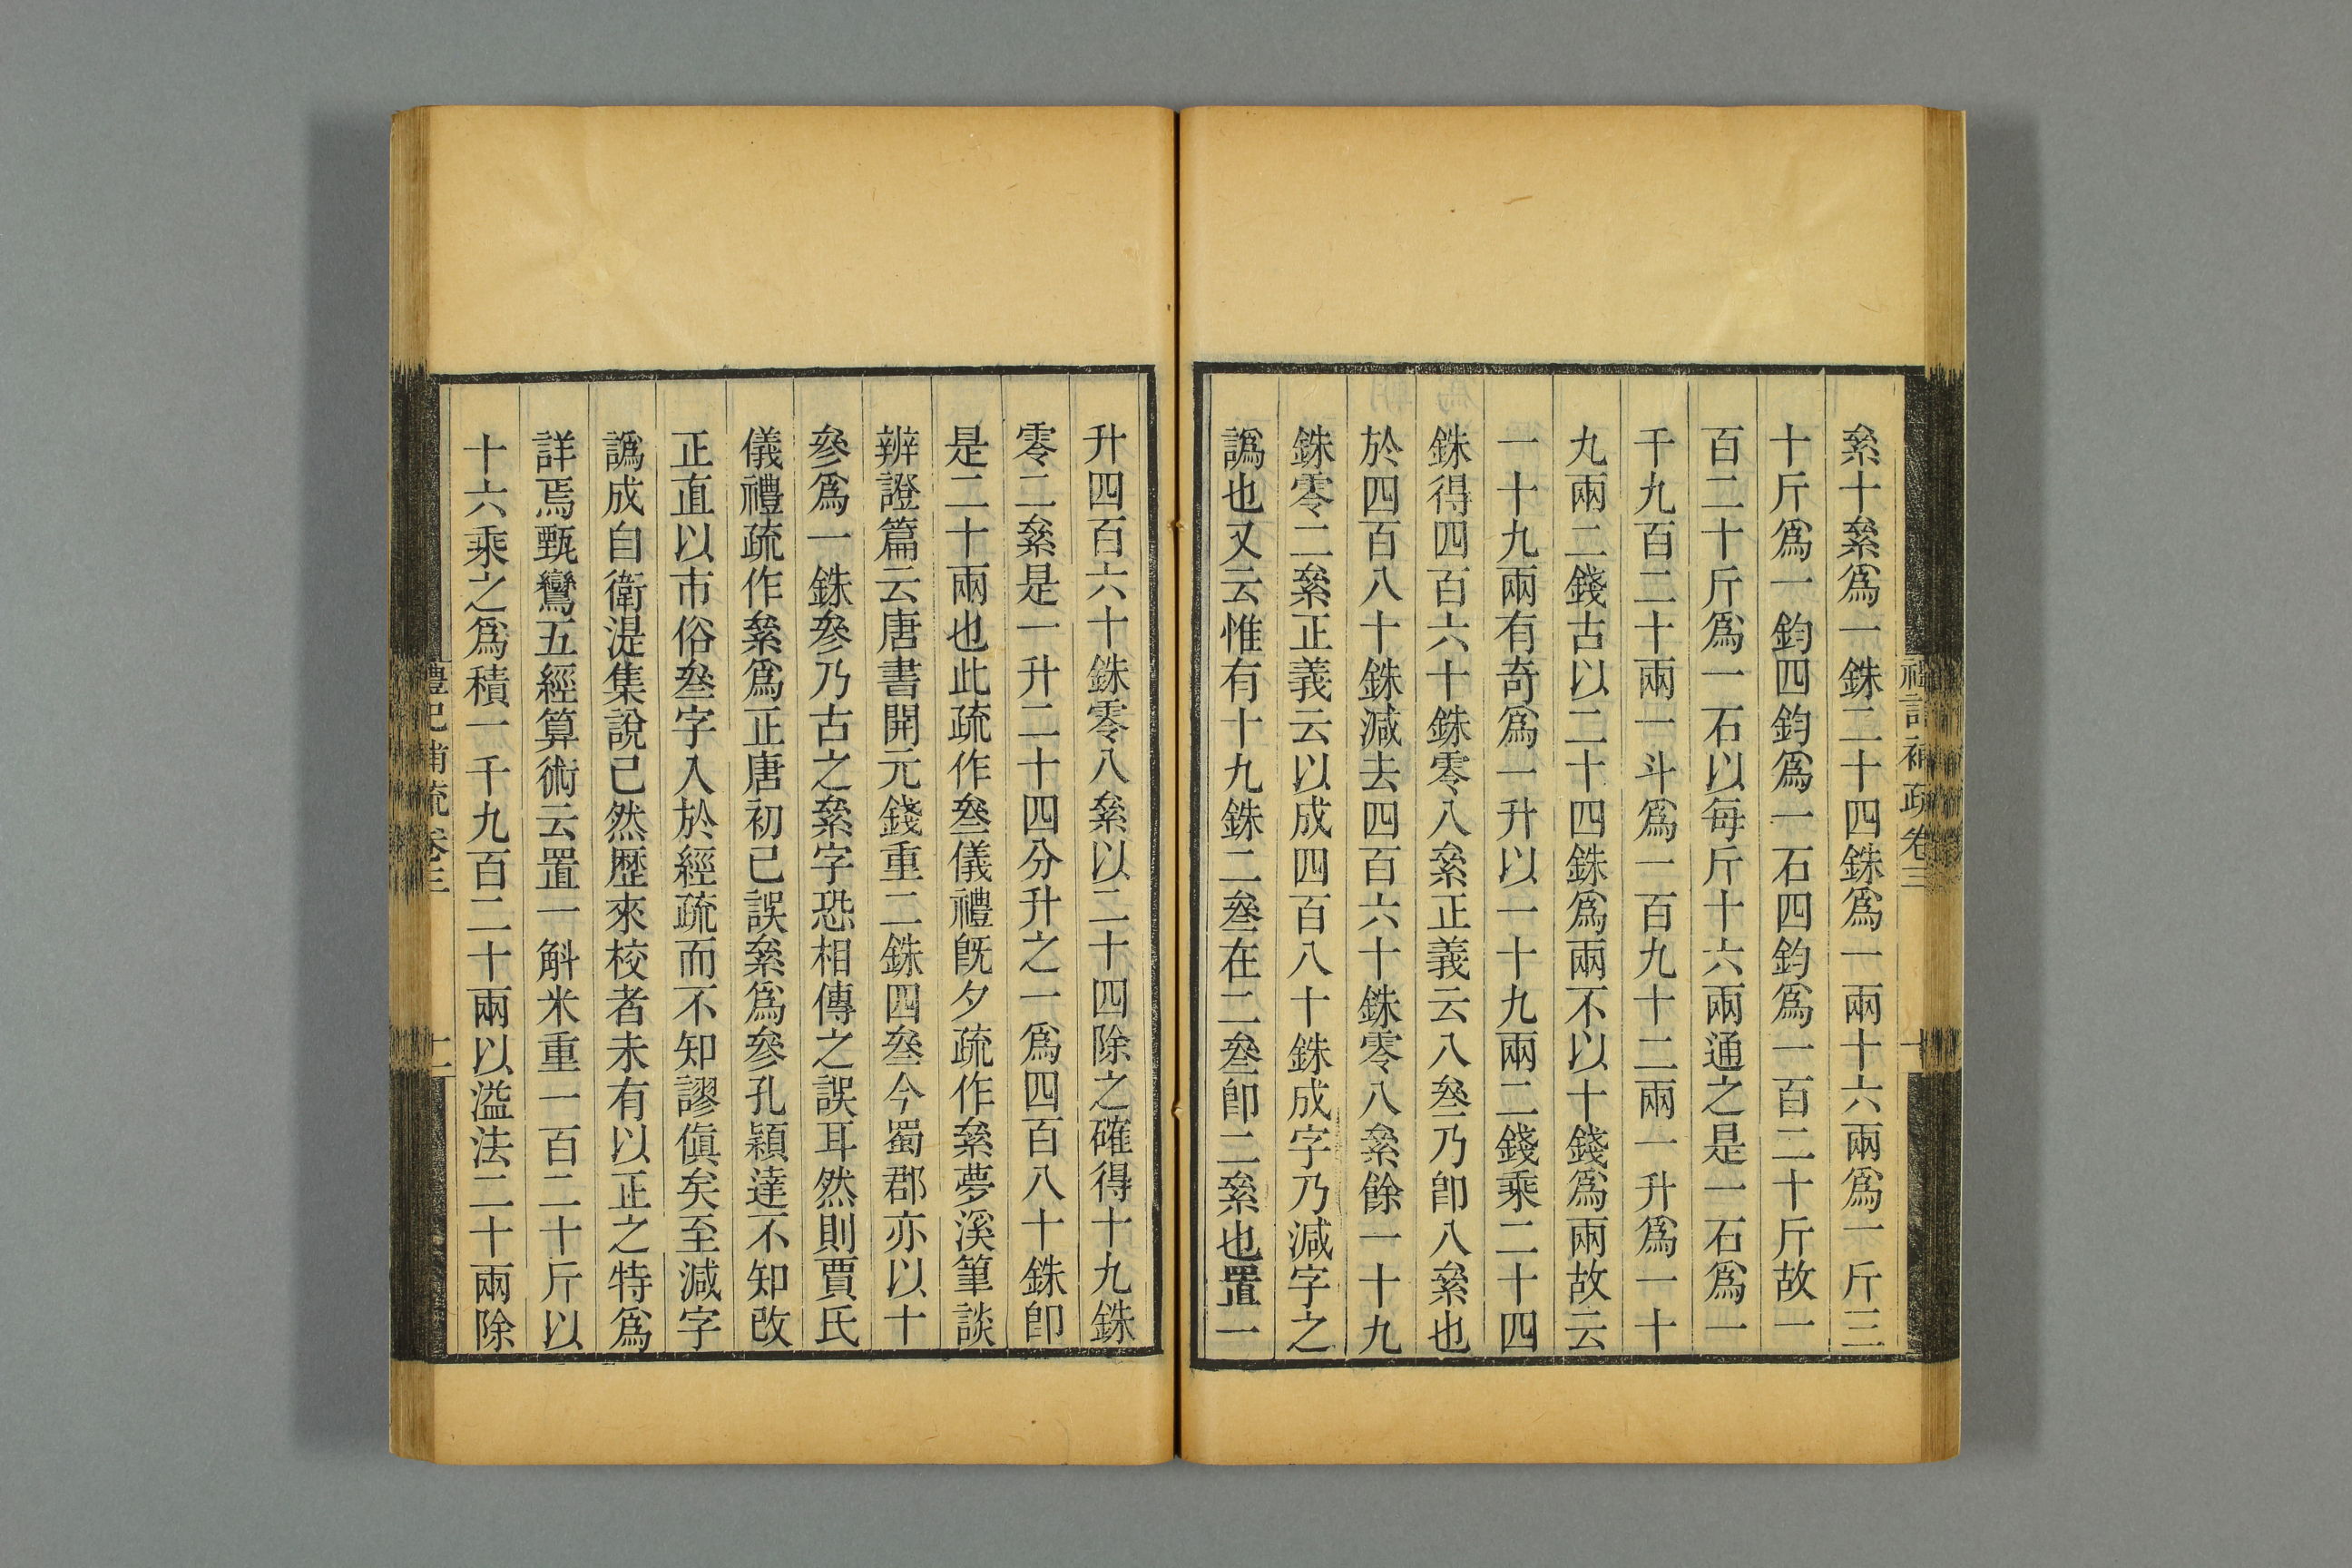 絫十絫爲一銖二十四銖爲一兩十六兩爲一斤三
十斤爲一鈞四鈞爲一石四鈞爲一百二十斤故一
百二十斤爲一石以每斤十六兩通之是一石爲一
千九百二十兩一斗爲一百九十二兩一升爲一十
九兩二錢古以二十四銖爲兩不以十錢爲兩故云
一十九兩有奇爲一升以一十九兩二錢乘二十四
銖得四百六十銖零八絫正義云八叄乃卽八絫也
於四百八十銖減去四百六十銖零八絫餘一十九
銖零二絫正義云以成四百八十銖成字乃減字之
譌也又云惟有十九銖二叄在二叄卽二絫也置一
禮記補疏卷三
十
升四百六十銖零八絫以二十四除之確得十九銖
零二絫是一升二十四分升之一爲四百八十銖卽
是二十兩也此疏作叄儀禮旣夕疏作絫夢溪筆談
辨證篇云唐書開元錢重二銖四叄今蜀郡亦以十
參爲一銖參乃古之絫字恐相傳之誤耳然則賈氏
儀禮疏作絫爲正唐初已誤絫爲參孔穎達不知改
正直以市俗叄字入於經疏而不知謬傎矣至減字
譌成自衛湜集說已然歷來校者未有以正之特爲
詳焉甄鸞五經算術云置一斛米重一百二十斤以
十六乘之爲積一千九百二十兩以溢法二十兩除
禮記補疏卷三
十一